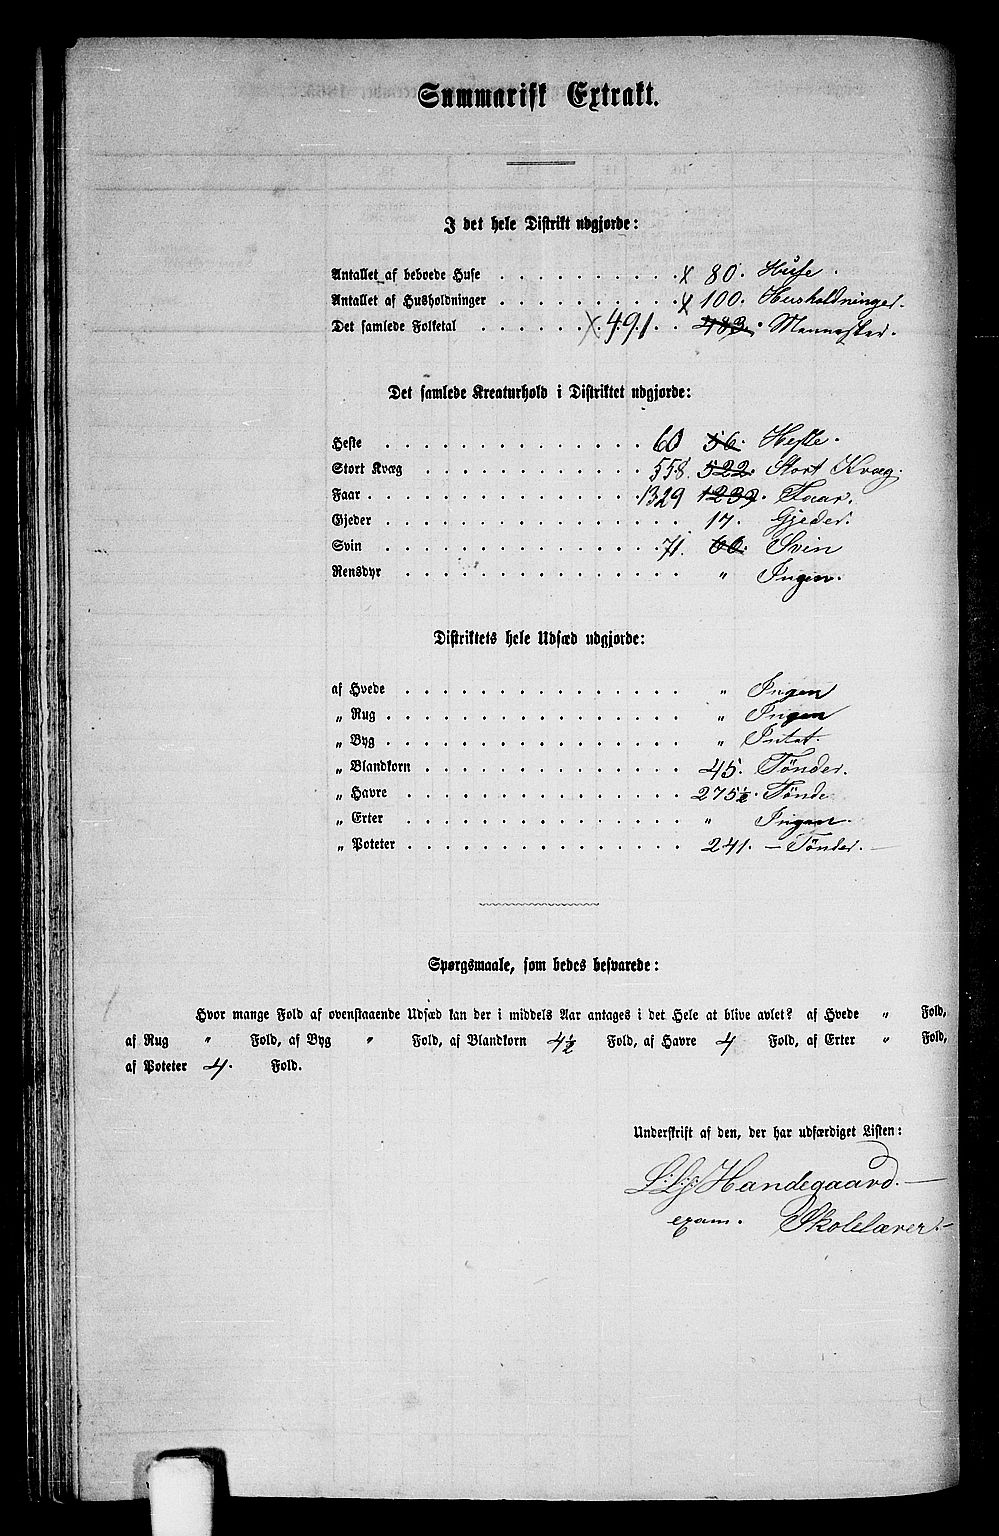 Summarisk Extrakt.
I det hele Distrikt udgjorde:
Antallet af beboede Huse . . . . . . . . . x 80. Huse.
Antallet af Husholdninger . . . . . . . . . x 100. Husholdninger.
Det samlede Folketal . . . . . x 491. . . 483. Mennesker.
Det samlede Kreaturhold i Distriktet udgjorde:
Heste . . . . . . . . . . . . 60 56. Heste.
Stort Kvæg . . . . . . . . . . 558. 522. Stort Kvæg.
Faar . . . . . . . . . . . . 1329 1239. Faar.
Gjeder . . . . . . . . . . . . 17. Gjeder.
Svin . . . . . . . . . . . . 71. 60. Svin
Rensdyr . . . . . . . . . . . . " Ingen.
Distriktets hele Udsæd udgjorde:
af Hvede . . . . . . . . . . . . " Ingen
„ Rug . . . . . . . . . . . . " Ingen
„ Byg . . . . . . . . . . . . " Intet.
„ Blandkorn . . . . . . . . . . . 45. Tønder.
„ Havre . . . . . . . . . . . . 275½. Tønde
„ Erter . . . . . . . . . . . . " Ingen.
„ Poteter . . . . . . . . . . . . 241. — Tønder. —
Spørgsmaale, som bedes besvarede:
Hvor mange Fold af ovenstaaende Udsæd kan der i middels Aar antages i det Hele at blive avlet? af Hvede " Fold,
af Rug " Fold, af Byg " Fold, af Blandkorn 4½ Fold, af Havre 4 Fold, af Erter " Fold,
af Poteter 4. Fold.
Underskrift af den, der har udfærdiget Listen:
Handegaard. —
exam. Skolelærer. —